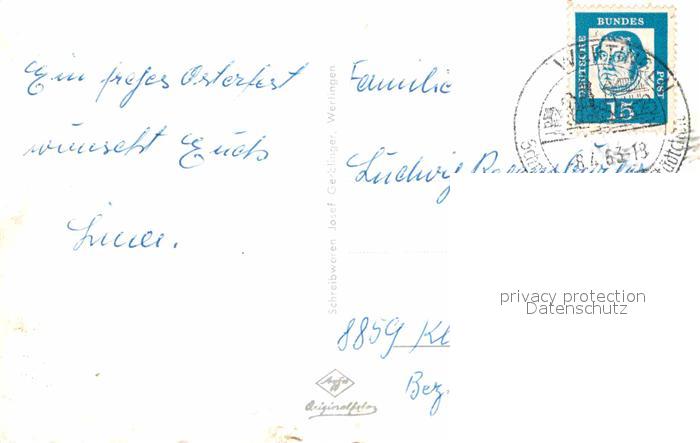 Ein frohes Osterfest
wünscht Euch
Schreibwaren Josef Gerblinger, Wertingen
Familie
Ludwig
8859 Kl
Bez.
DEUTSCHE
BUNDES
POST
15
8.4.63-18
privacy protection
Datenschutz
Agfa
Originalfoto